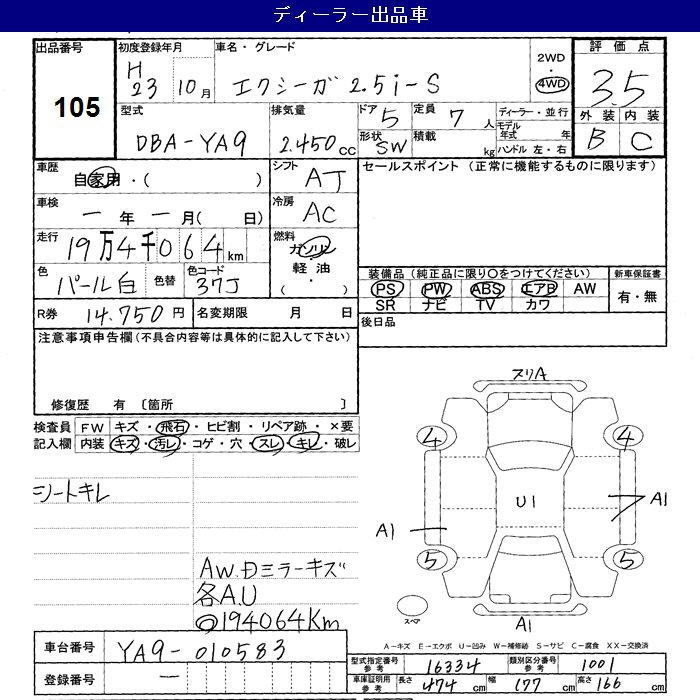 ディーラー出品車
出品番号 初度登録年月 車名・グレード 評価点
105
H23 10月 エクシーガ 2.5i-S 2WD 4WD 3.5
型式 排気量 ドア 5 定員 7人 ディーラー・並行 外装 内装
DBA-YA9 2.450cc 形状 SW 積載 kg モデル年式 年 B C
ハンドル 左・右
車歴 自家用・( ) シフト AT セールスポイント (正常に機能するものに限ります)
車検 一年 一月( 日) 冷房 AC
走行 19万4千064km 燃料 ガソリン
軽油
( ・ )
色 パール白 色替 色コード 37J 装備品 (純正品に限り○をつけてください) 新車保証書
PS PW ABS エアB AW 有・無
SR ナビ TV カワ
R券 14.750円 名変期限 月 日 後日品
注意事項申告欄 (不具合内容等は具体的に記入して下さい)
修復歴 有 [箇所 ]
検査員記入欄 FW キズ・飛石・ヒビ割・リペア跡・×要
内装 キズ・汚レ・コゲ・穴・スレ・キレ・破レ
シートキレ
AW.Dミラーキズ
各A.U
◎194064Km
スリA
4 4
U1
A1 A1
5 5
スペア
A1
A-キズ E-エクボ U-凹み W-補修跡 S-サビ C-腐食 XX-交換済
車台番号 YA9-010583
登録番号 一
型式指定番号 参考 16334 類別区分番号 参考 1001
車庫証明用 参考 長さ 474cm 幅 177cm 高さ 166cm